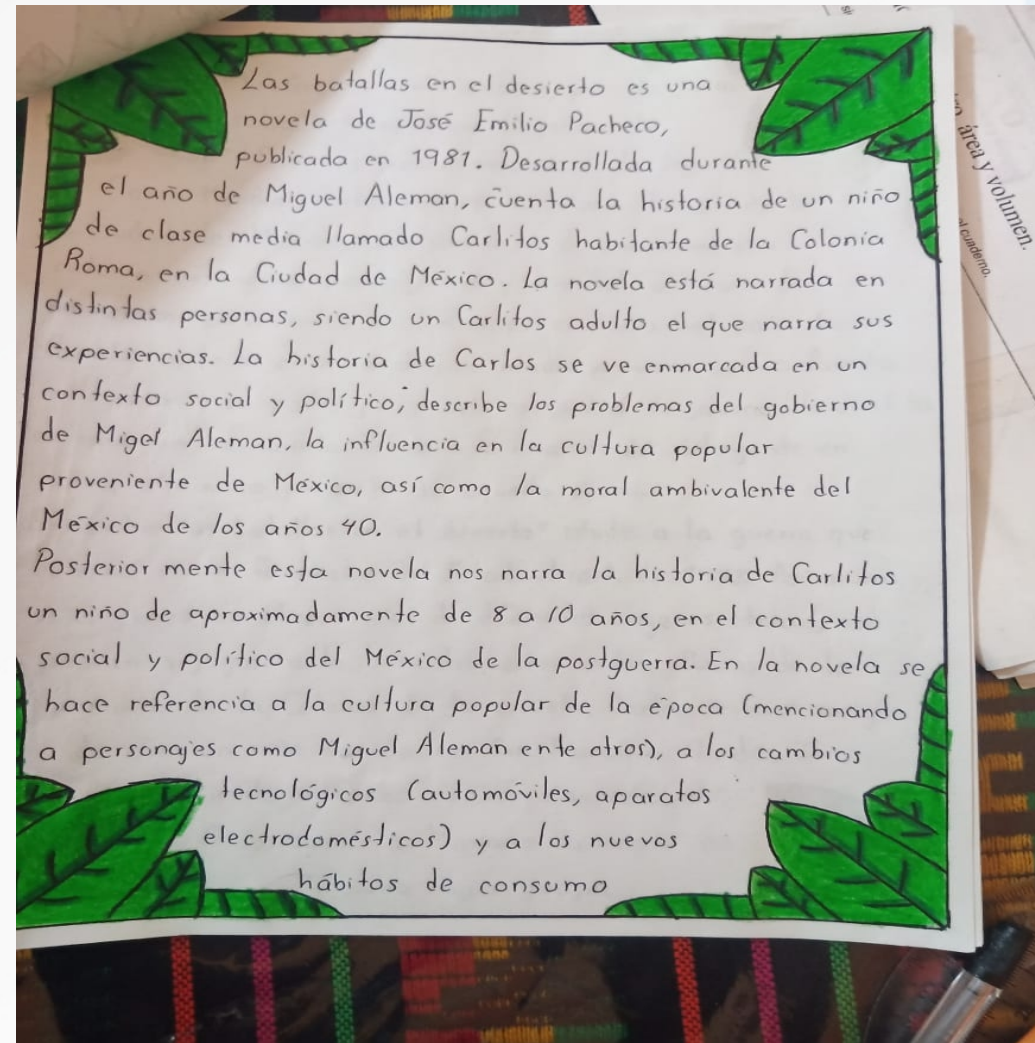 Las batallas en el desierto es una
novela de José Emilio Pacheco,
publicada en 1981. Desarrollada durante
el año de Miguel Aleman, cuenta la historia de un niño
de clase media llamado Carlitos habitante de la Colonia
Roma, en la Ciudad de México. La novela está narrada en
distintas personas, siendo un Carlitos adulto el que narra sus
experiencias. La historia de Carlos se ve enmarcada en un
contexto social y político; describe los problemas del gobierno
de Migel Aleman, la influencia en la cultura popular
proveniente de México, así como la moral ambivalente del
México de los años 40.
Posterior mente esta novela nos narra la historia de Carlitos
un niño de aproximadamente de 8 a 10 años, en el contexto
social y político del México de la postguerra. En la novela se
hace referencia a la cultura popular de la época (mencionando
a personajes como Miguel Aleman ente otros), a los cambios
tecnológicos (automóviles, aparatos
electrodomésticos) y a los nuevos
hábitos de consumo
área y volumen.
el cuaderno.